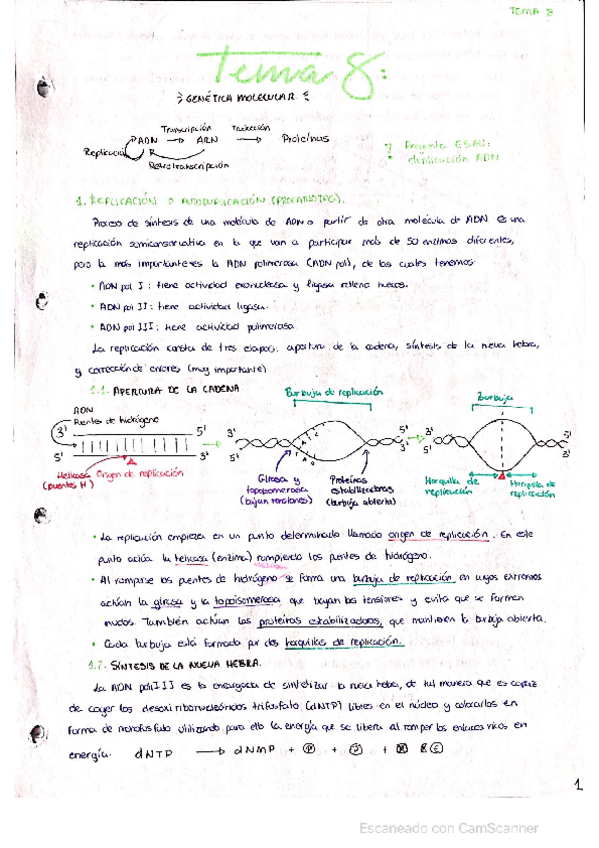 TEMA 8
Tema 8:
GENÉTICA MOLECULAR
Transcripción Traducción
ADN → ARN → Proteínas
Replicación
Retrotranscripción
Pregunta EBAU:
duplicación ADN
1. REPLICACIÓN O AUTODUPLICACIÓN (PROCARIOTAS).
Proceso de síntesis de una molécula de ADN a partir de otra molécula de ADN es una
replicación semiconservativa en la que van a participar más de 50 enzimas diferentes,
pero la más importante es la ADN polimerasa (ADN pol), de las cuales tenemos:
• ADN pol I: tiene actividad exonucleasa y ligasa rellena huecos.
• ADN pol II: tiene actividad ligasa.
• ADN pol III: tiene actividad polimerasa
La replicación consta de tres etapas: apertura de la cadena, síntesis de la nueva hebra,
y corrección de errores (muy importante)
1.1. APERTURA DE LA CADENA
Burbuja de replicación
Burbuja
ADN
Puentes de hidrógeno
3' 5' 3' 5' 3' 3'
5' 3' 5' 3' 5' 5'
Helicasa Origen de replicación
(puentes H)
Girasa y
topoisomerasa
(bajan tensiones)
Proteínas
estabilizadoras
(burbuja abierta)
Horquilla de
replicación
Horquilla de
replicación
• La replicación empieza en un punto determinado llamado origen de replicación. En este
punto actúa la helicasa (enzima) rompiendo los puentes de hidrógeno.
• Al romperse los puentes de hidrógeno se forma una burbuja de replicación en cuyos extremos
actúan la girasa y la topoisomerasa que bajan las tensiones y evita que se formen
nudos. También actúan las proteínas estabilizadoras, que mantienen la burbuja abierta.
• Cada burbuja está formada por dos horquillas de replicación.
1.2. SÍNTESIS DE LA NUEVA HEBRA.
La ADN pol III es la encargada de sintetizar la nueva hebra, de tal manera que es capaz
de coger los desoxirribonucleótidos trifosfato (dNTP) libres en el núcleo y colocarlos en
forma de monofosfato utilizando para ello la energía que se libera al romper los enlaces ricos en
energía. dNTP → dNMP + P + P + E
1
Escaneado con CamScanner